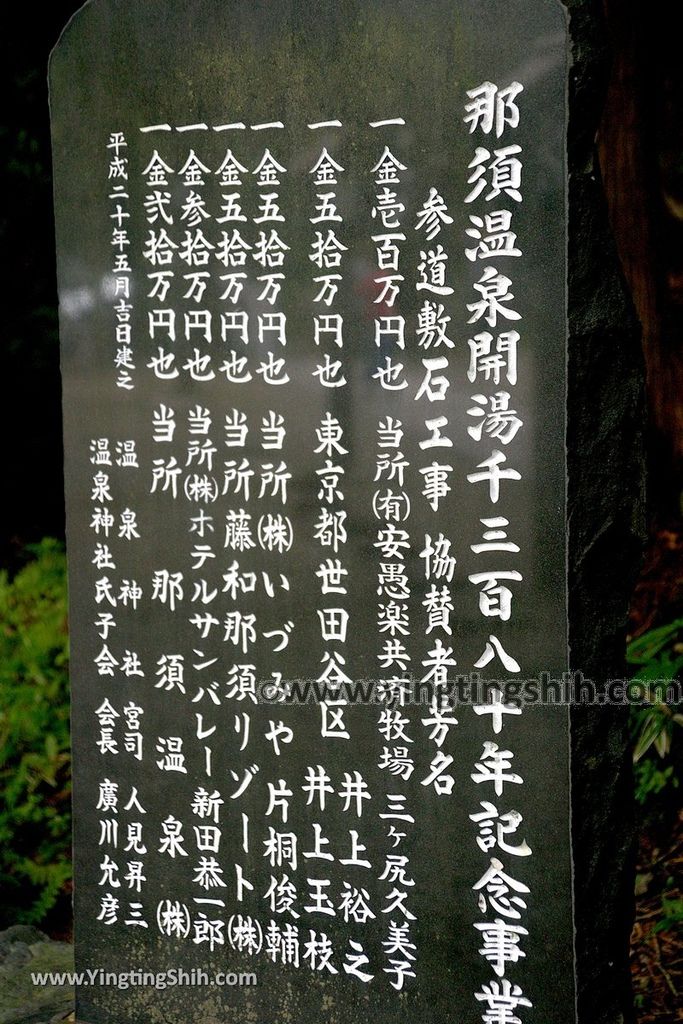 那須温泉開湯千三百八十年記念事業
参道敷石工事 協賛者芳名
一金壱百万円也 当所(有)安愚楽共済牧場 三ヶ尻久美子
一金五拾万円也 東京都世田谷区 井上裕之
井上玉枝
一金五拾万円也 当所(株)いづみや 片桐俊輔
一金五拾万円也 当所藤和那須リゾート(株)
一金参拾万円也 当所(株)ホテルサンバレー 新田恭一郎
一金弐拾万円也 当所 那須温泉(株)
平成二十年五月吉日建之
温泉神社 宮司 人見昇三
温泉神社氏子会 会長 廣川允彦
©www.yingtingshih.com
www.YingtingShih.com